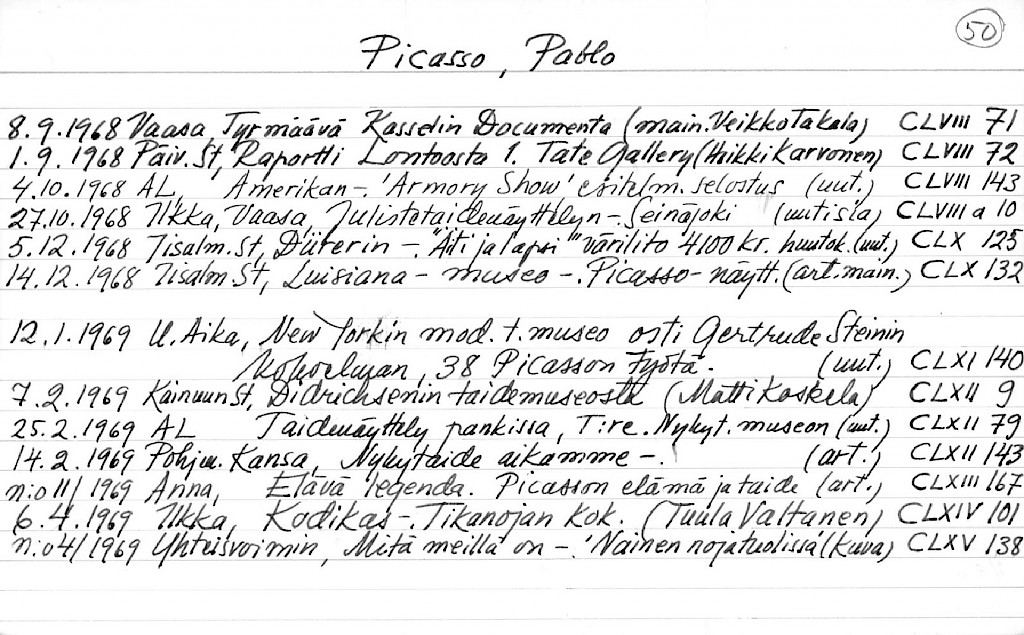 50
Picasso, Pablo
8.9.1968 Vaasa, Tyrmäävä Kasselin Documenta (main. Veikko Takala) CLVIII 71
1.9.1968 Päiv. St, Raportti Lontoosta 1. Tate Gallery (Heikki Karvonen) CLVIII 72
4.10.1968 AL, Amerikan -. 'Armory Show' esitelm. selostus (uut.) CLVIII 143
27.10.1968 Ilkka, Vaasa, Julistetaidenäyttelyn -. Seinäjoki (uutisia) CLVIII a 10
5.12.1968 Iisalm. St, Dürerin -. "Äiti ja lapsi" värilito 4100 kr. huutok. (uut.) CLX 125
14.12.1968 Iisalm. St, Luisiana - museo -. Picasso-näytt. (art. main.) CLX 132
12.1.1969 U. Aika, New Yorkin mod. t. museo osti Gertrude Steinin
kokoelman, 38 Picasson työtä. (uut.) CLXI 140
7.2.1969 Kainuun St, Didrichsenin taidemuseosta (Matti Koskela) CLXII 9
25.2.1969 AL Taidenäyttely pankissa, T:re. Nykyt. museon (uut.) CLXII 79
14.2.1969 Pohjn. Kansa, Nykytaide aikamme -. (art.) CLXII 143
n:o 11/1969 Anna, Elävä legenda. Picasson elämä ja taide (art.) CLXIII 167
6.4.1969 Ilkka, Kodikas -. Tikanojan kok. (Tuula Valtanen) CLXIV 101
n:o 4/1969 Yhteisvoimin, Mitä meillä on -. 'Nainen nojatuolissa' (kuva) CLXV 138